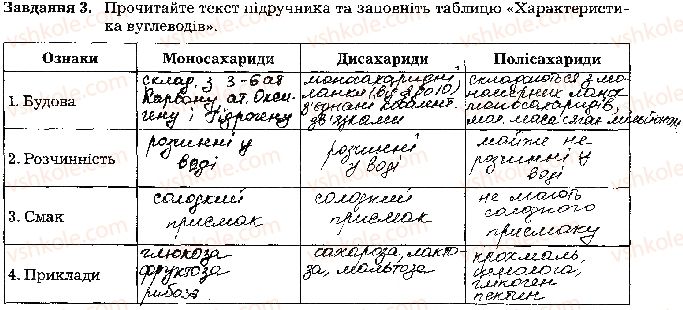 Завдання 3. Прочитайте текст підручника та заповніть таблицю «Характеристи-
ка вуглеводів».
Ознаки Моносахариди Дисахариди Полісахариди
1. Будова
склад. з 3-6 ат
Карбону, ат. Окси-
гену і Гідрогену
моносахаридні
ланки (від 2 до 10)
з'єднані ковалент.
зв'язками
складаються з мо-
номерних ланок
моносахаридів,
мол. маса сягає мільйонів
2. Розчинність
розчинні у
воді
розчинні
у воді
майже не
розчинні у
воді
3. Смак
солодкий
присмак
солодкий
присмак
не мають
солодкого
присмаку
4. Приклади
глюкоза
фруктоза
рибоза
сахароза, лакто-
за, мальтоза
крохмаль,
целюлоза,
глікоген
пектин
vshkole.com